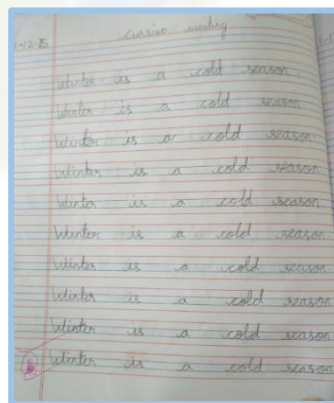 cursive writing
1-12-25
Winter is a cold season
Winter is a cold season
Winter is a cold season
Winter is a cold season
Winter is a cold season.
Winter is a cold season
Winter is a cold season
Winter is a cold season
Winter is a cold season
Winter is a cold season